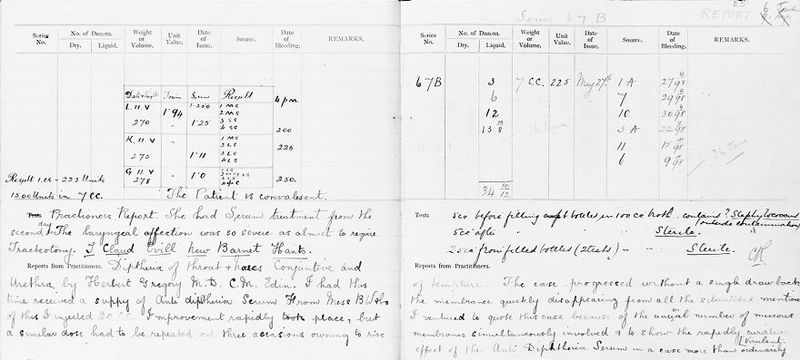 Series No.
No. of Dozens.
Dry.
Liquid.
Weight or Volume.
Unit Value.
Date of Issue.
Source.
Date of Bleeding.
REMARKS.
Toxin Serum Result
L. 11. V 1·250 1 MS
1·94 2 MS
270 " 1·25 3 SS
4 SS
4 pm.
200
K. 11. V 1 MS
270 " 1·11
220
G. 11. V
278 " 1·0
250.
Result 1.cc = 225 Units
1500 Units in 7 CC.
The Patient is convalescent.
Practioness Report. She had Serum treatment from the
second day The laryngeal affection was so severe as almost to require
Tracheotomy. I Claud Evill New Barnet Hants.
Reports from Practitioners. Diptheria of Throat & Nares Conjuntive and
Urethra, by Herbert Gregory M.D. C.M. Edin. I had this
time received a supply of Anti diptheria Serum From Mess B W & Co
of this I injected 20 CC Improvement rapidly took place, but
a similar dose had to be repeated on three accasions owning to rise
Series 67 B
REPORT.
6 June
Series No.
No. of Dozens.
Dry.
Liquid.
Weight or Volume.
Unit Value.
Date of Issue.
Source.
Date of Bleeding.
REMARKS.
67B 3 7 CC. 225 May 27th 1 A 27 4/98
6 7 29 4/98
12 10 30 4/98
13 5 A 22 4/98
11 15 4/98
6 9 4/98
34
Tests 5cc before filling bottles in 100 cc broth. contains ? Staphylococcus
(outside contamination)
5cc after " " " " Sterile.
25cc from filled bottles (2 tests) " " Sterile.
Reports from Practitioners. of tempture. The case progressed without a singh drawback
the membrane quickly disappearing from all the situations mentioned
I ventured to quote this case because of the unusual number of mucous
membranes simultaneously involved & to show the rapidly curative
effect of the Anti Diphtheria Serum in a case more than ordinarily
virulent